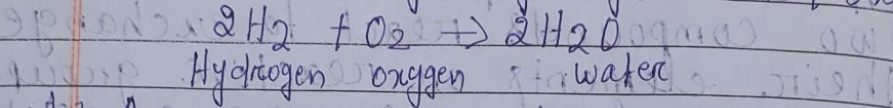 2H2 + O2 → 2H2O
Hydrogen oxygen water